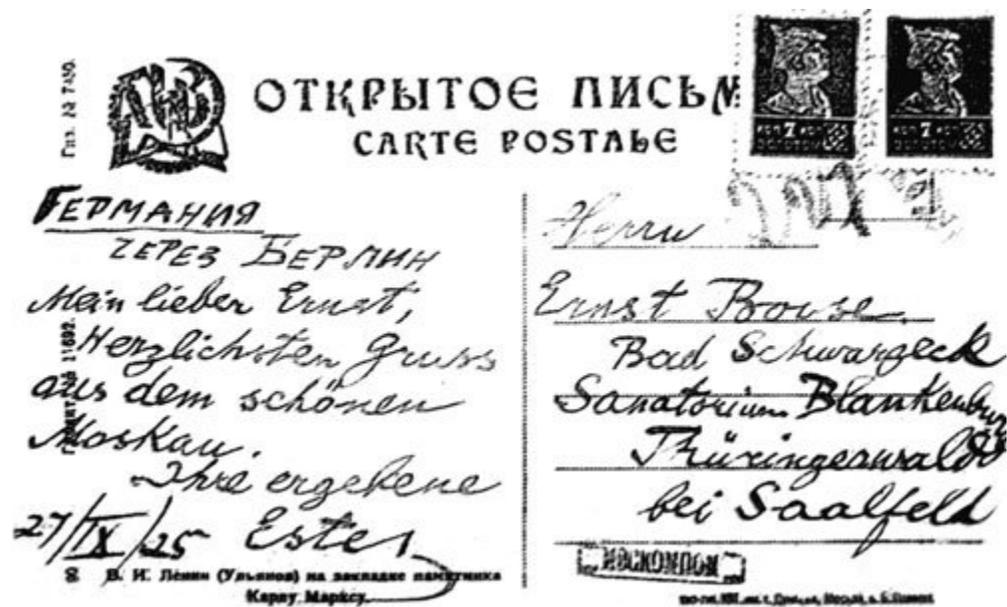 Гиз. № 7450.
ЛИЗ
ОТКРЫТОЕ ПИСЬМ
CARTE POSTALE
КОП 7 КОП
ЗОЛОТОМ
КОП 7 КОП
ЗОЛОТОМ
ГЕРМАНИЯ
ЧЕРЕЗ БЕРЛИН
Mein lieber Ernst,
Herzlichsten Gruss
aus dem schönen
Moskau.
Ihre ergebene
Ester
27/IX/25
11692.
В. И. Ленин (Ульянов) на закладке памятника
Карлу Марксу.
Herrn
Ernst Bouse
Bad Schwarzeck
Sanatorium Blankenburg
Thüringerwald
bei Saalfeld
МОСКОМПОМ